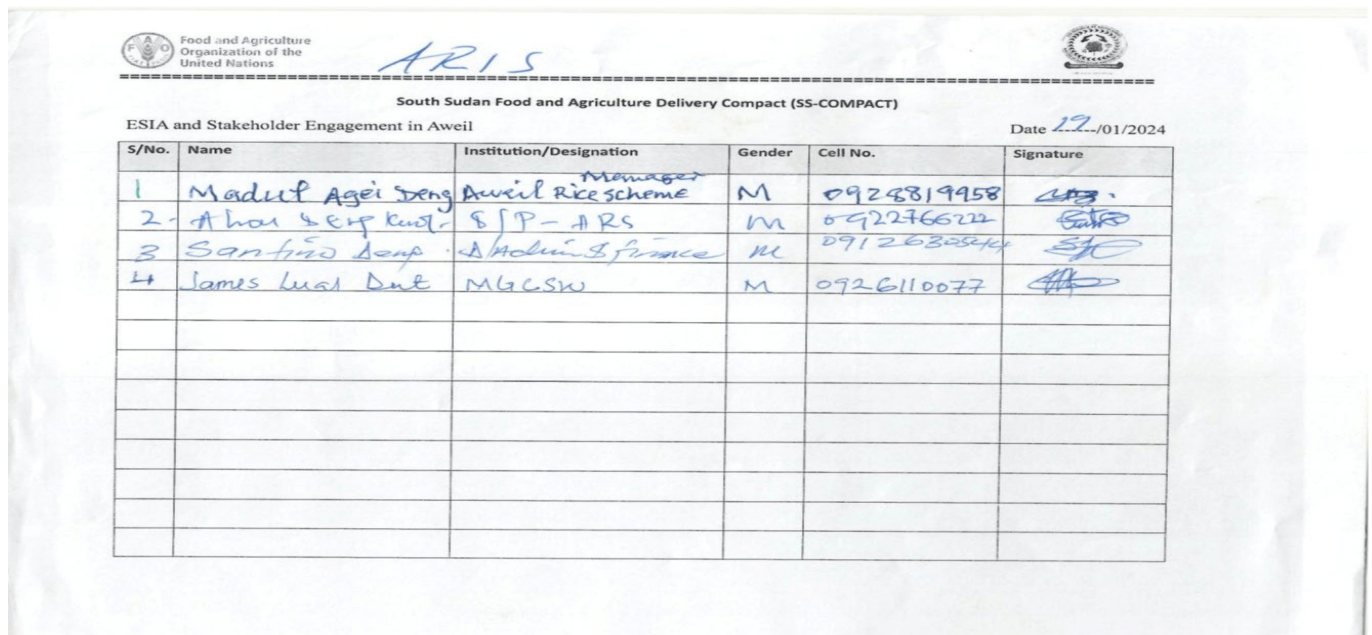 Food and Agriculture
Organization of the
United Nations
ARIS
South Sudan Food and Agriculture Delivery Compact (SS-COMPACT)
ESIA and Stakeholder Engagement in Aweil
Date 22/01/2024
S/No. Name Institution/Designation Gender Cell No. Signature
Manager
1 Madut Agei Deng Aweil Rice scheme M 0928819958
2- S/P-ARS M 0922766222
3 Santino Deng D/Admin & finance M
4 James Lual Dut MGCSW M 0926110077